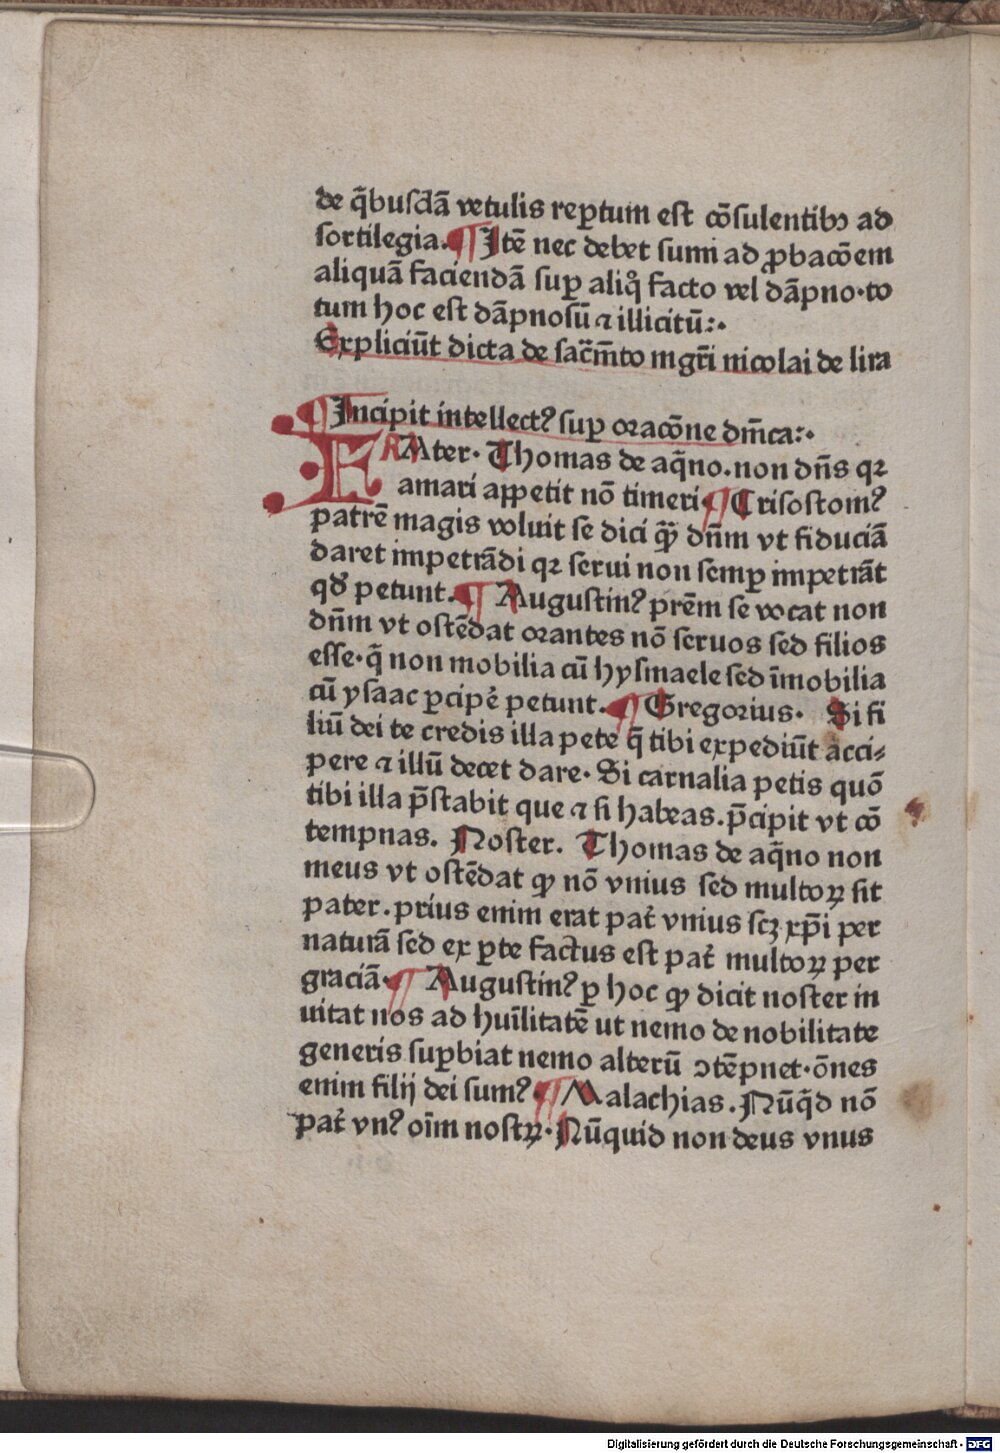 de q̄busdā vetulis reꝑtum est cōsulentibꝫ ad
sortilegia. ¶ Itē nec debet sumi ad ꝓbacōem
aliquā faciendā suꝑ aliq̊ facto vel dāpno·to
tum hoc est dāpnosū ⁊ illicitū:·
Expliciūt dicta de sac̄m̄to mgr̄i nicolai de lira
¶ Incipit intellectꝰ suꝑ oracōne dm̄ca:·
FRAter· Thomas de aq̄no.non dn̄s qꝛ
amari aꝑpetit nō timeri· ¶ Crisostomꝰ
patrē magis voluit se dici qꝫ̄ dn̄m vt fiduciā
daret impetrādi qꝛ serui non semꝑ impetrāt
qđ petunt. ¶ Augustinꝰ prēm se vocat non
dn̄m vt ostēdat orantes nō seruos sed filios
esse·q̄ non mobilia cū hysmaele sed īmobilia
cū ysaac ꝑcipe᷒ petunt. ¶ Gregorius· Si fi
liū dei te credis illa pete q̄ tibi expediūt acci-
pere ⁊ illū decet dare· Si carnalia petis quō
tibi illa p̄stabit que ⁊ si habeas.p̄cipit vt cō
tempnas. Noster. Thomas de aq̄no non
meus vt ostēdat ꝙ nō vnius sed multoꝝ sit
pater.prius enim erat pat᷒ vnius scꝫ xp̄i per
naturā sed ex ꝑte factus est pat᷒ multoꝝ per
graciā· ¶ Augustinꝰ ꝑ hoc ꝙ dicit noster in
uitat nos ad huīlitatē ut nemo de nobilitate
generis suꝑbiat nemo alterū ꝯtēpnet·ōnes
enim filij dei sumꝰ· ¶ Malachias. Nūq̄d nō
pat᷒ vnꝰ oīm nostꝝ· Nūquid non deus vnus
Digitalisierung gefördert durch die Deutsche Forschungsgemeinschaft - DFG